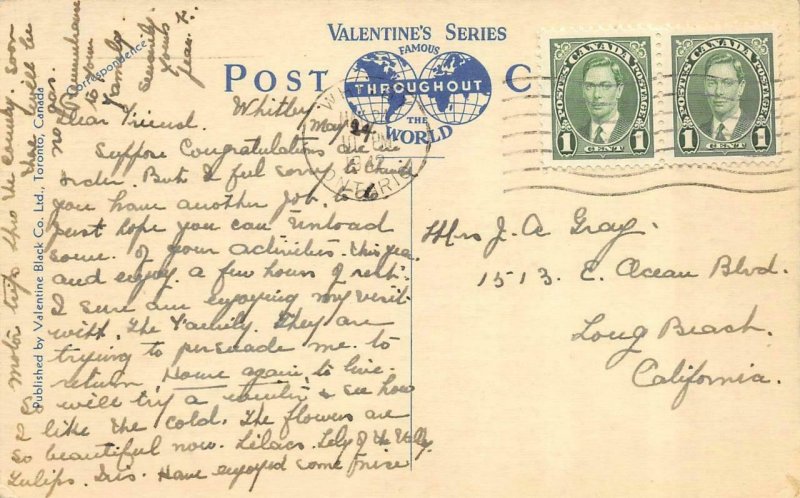 VALENTINE'S SERIES
FAMOUS
THROUGHOUT
THE
WORLD
POST C
Correspondence
Published by Valentine Black Co. Ltd., Toronto, Canada
POSTES CANADA POSTAGE
1 CENT 1
POSTES CANADA POSTAGE
1 CENT 1
ONTARIO
Whitby
May 24
Dear Friend.
Suppose Congratulations are in
order. But I feel sorry to think
you have another Job. to
Just hope you can unload
some. of your activities. this year
and enjoy. a few hours of rest.
I sure am enjoying my visit
with. The Family. They are
trying to persuade me. to
return Home again, to live.
will try a winter & see how
I like the cold. The flowers are
so beautiful now. Lilacs. Lily of the Vally
Tulips. Iris. Have enjoyed some nice
motor trips thro the country. Soon
there will be
no gas.
to your
Family
Sincerely
Yours
Mrs J. A Gray.
1513. E. Ocean Blvd.
Long Beach.
California.